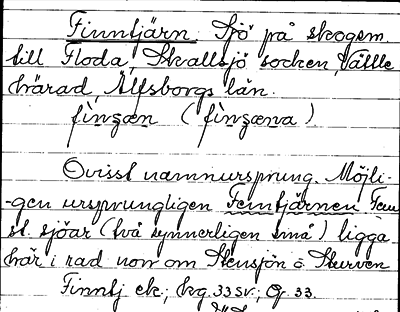 Finntjärn. Sjö på skogen
till Floda, Skallsjö socken, Vättle
härad, Älfsborgs län.
fìnʒæn (fìnʒæna)
Ovisst namnursprung. Möjli-
-gen ursprungligen Femtjärnen Fem
st. sjöar (två synnerligen små) ligga
här i rad norr om Stensjön o. Sturven
Finntj ek.; kg. 33 SV.; G. 33.